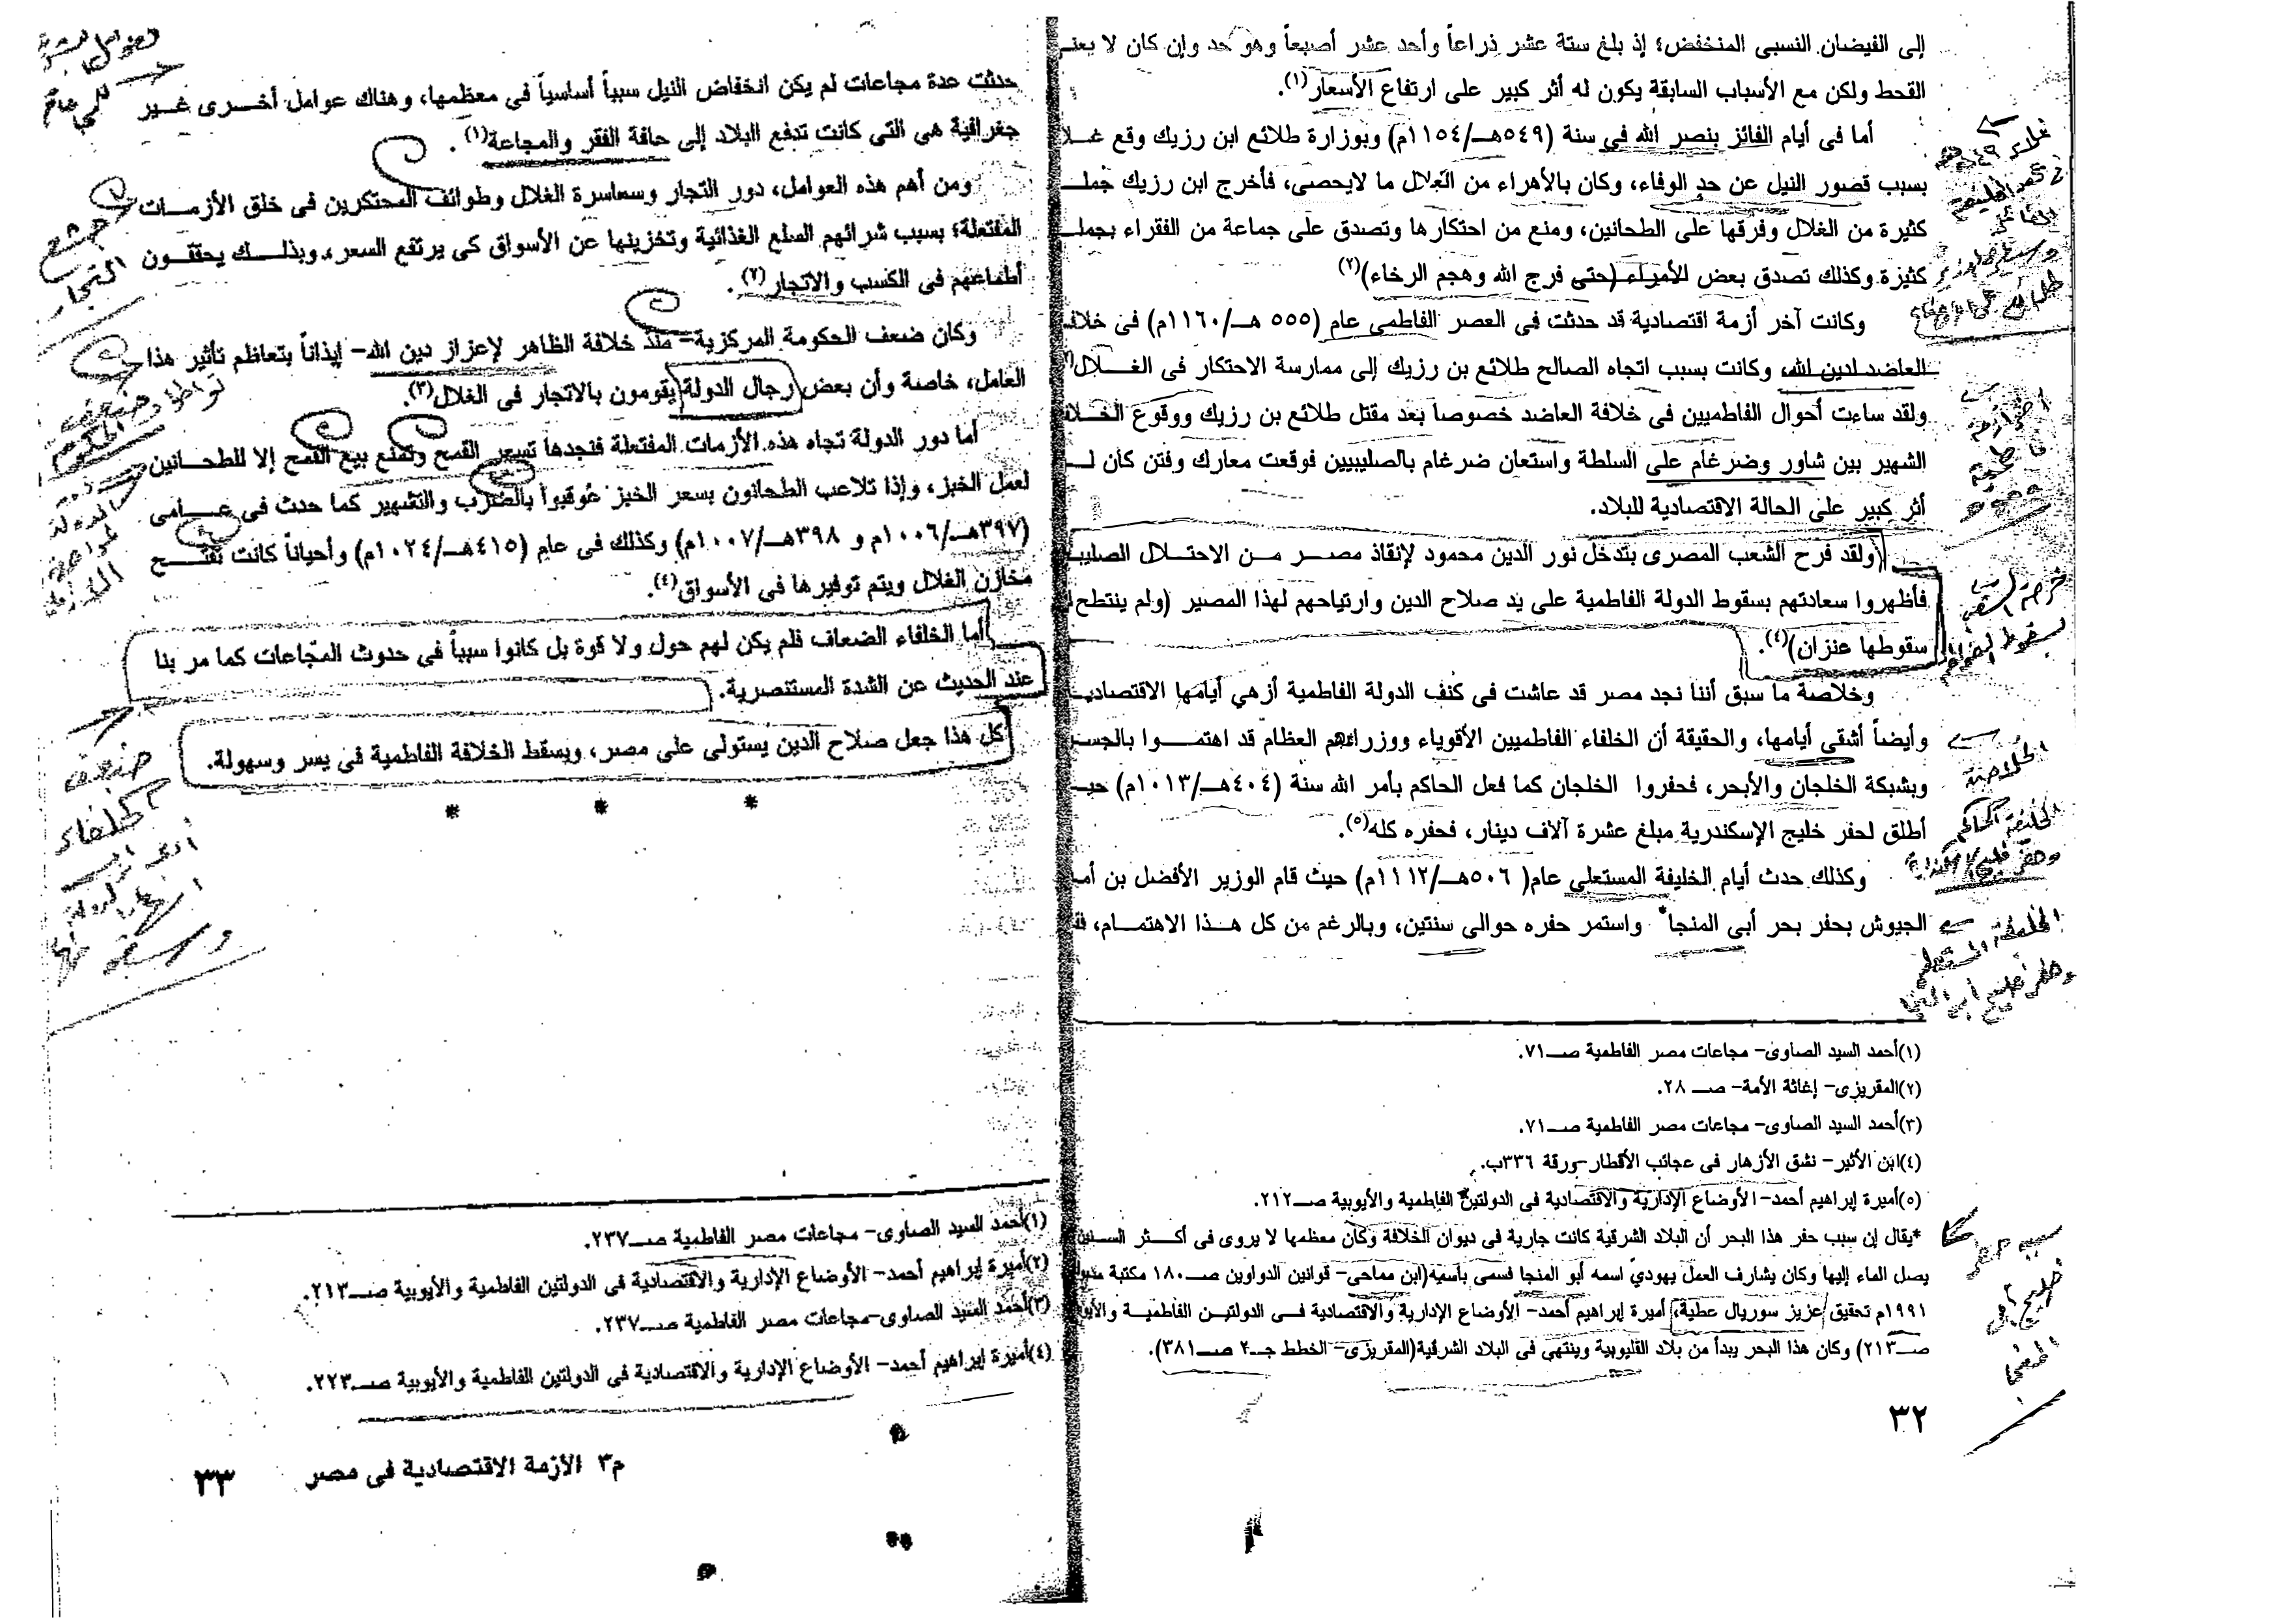 إلى الفيضان النسبى المنخفض؛ إذ بلغ ستة عشر ذراعاً وأحد عشر أصبعاً وهو حد وإن كان لا يعنـ
القحط ولكن مع الأسباب السابقة يكون له أثر كبير على ارتفاع الأسعار(١).
أما فى أيام الفائز بنصر الله فى سنة (٥٤٩هـ/١١٥٤م) وبوزارة طلائع ابن رزيك وقع غـلا
بسبب قصور النيل عن حد الوفاء، وكان بالأهراء من الغلال ما لايحصى، فأخرج ابن رزيك جملـ
كثيرة من الغلال وفرقها على الطحانين، ومنع من احتكارها وتصدق على جماعة من الفقراء بجملـ
كثيرة وكذلك تصدق بعض الأمراء (حتى فرج الله وهجم الرخاء)(٢)
وكانت آخر أزمة اقتصادية قد حدثت فى العصر الفاطمى عام (٥٥٥ هـ/١١٦٠م) فى خلافـ
العاضد لدين الله، وكانت بسبب اتجاه الصالح طلائع بن رزيك إلى ممارسة الاحتكار فى الغـلال(٣
ولقد ساءت أحوال الفاطميين فى خلافة العاضد خصوصا بعد مقتل طلائع بن رزيك ووقوع الخـلاف
الشهير بين شاور وضرغام على السلطة واستعان ضرغام بالصليبيين فوقعت معارك وفتن كان لـ
أثر كبير على الحالة الاقتصادية للبلاد.
(ولقد فرح الشعب المصرى بتدخل نور الدين محمود لإنقاذ مصـر مـن الاحتـلال الصليبـ
فأظهروا سعادتهم بسقوط الدولة الفاطمية على يد صلاح الدين وارتياحهم لهذا المصير (ولم ينتطح
سقوطها عنزان)(٤).
وخلاصة ما سبق أننا نجد مصر قد عاشت فى كنف الدولة الفاطمية أزهي أيامها الاقتصاديـ
وأيضاً أشقى أيامها، والحقيقة أن الخلفاء الفاطميين الأقوياء ووزراءهم العظام قد اهتمـوا بالجسـ
وبشبكة الخلجان والأبحر، فحفروا الخلجان كما فعل الحاكم بأمر الله سنة (٤٠٤هـ/١٠١٣م) حيـ
أطلق لحفر خليج الإسكندرية مبلغ عشرة آلاف دينار، فحفره كله(٥).
وكذلك حدث أيام الخليفة المستعلى عام( ٥٠٦هـ/١١١٢م) حيث قام الوزير الأفضل بن أمـ
الجيوش بحفر بحر أبى المنجا* واستمر حفره حوالى سنتين، وبالرغم من كل هـذا الاهتمـام، فقـ
(١)أحمد السيد الصاوى- مجاعات مصر الفاطمية صـ٧١.
(٢)المقريزى- إغاثة الأمة- صـ ٢٨.
(٣)أحمد السيد الصاوى- مجاعات مصر الفاطمية صـ٧١.
(٤)ابن الأثير- نشق الأزهار فى عجائب الأقطار-ورقة ٣٣٦ب.
(٥)أميرة إبراهيم أحمد- الأوضاع الإدارية والاقتصادية فى الدولتين الفاطمية والأيوبية صـ٢١٢.
*يقال إن سبب حفر هذا البحر أن البلاد الشرقية كانت جارية فى ديوان الخلافة وكان معظمها لا يروى فى أكـثر السـنين
يصل الماء إليها وكان يشارف العمل يهودىّ اسمه أبو المنجا فسمى بأسمه(ابن مماحى- قوانين الدواوين صـ١٨٠ مكتبة
١٩٩١م تحقيق عزيز سوريال عطية، أميرة إبراهيم أحمد- الأوضاع الإدارية والاقتصادية فـى الدولتيـن الفاطميـة والأيو
صـ٢١٣) وكان هذا البحر يبدأ من بلاد القليوبية وينتهى فى البلاد الشرقية(المقريزى- الخطط جـ٢ صـ٣٨١).
٣٢
الخلاصة
حدثت عدة مجاعات لم يكن انخفاض النيل سبباً أساسياً فى معظمها، وهناك عوامل أخـرى غـير
جغرافية هى التى كانت تدفع البلاد إلى حافة الفقر والمجاعة(١).
ومن أهم هذه العوامل، دور التجار وسماسرة الغلال وطوائف المحتكرين فى خلق الأزمـات
المفتعلة؛ بسبب شرائهم السلع الغذائية وتخزينها عن الأسواق كى يرتفع السعر، وبذلـك يحققـون
أطماعهم فى الكسب والاتجار(٢).
وكان ضعف الحكومة المركزية- منذ خلافة الظاهر لإعزاز دين الله- إيذاناً بتعاظم تأثير هذا
العامل، خاصة وأن بعض رجال الدولة يقومون بالاتجار فى الغلال(٣).
أما دور الدولة تجاه هذه الأزمات المفتعلة فنجدها تسعر القمح وتمنع بيع القمح إلا للطحـانين
لعمل الخبز، وإذا تلاعب الطحانون بسعر الخبز عُوقبوا بالضرب والتشهير كما حدث فى عـامى
(٣٩٧هـ/١٠٠٦م و ٣٩٨هـ/١٠٠٧م) وكذلك فى عام (٤١٥هـ/١٠٢٤م) وأحياناً كانت تفتـح
مخازن الغلال ويتم توفيرها فى الأسواق(٤).
أما الخلفاء الضعاف فلم يكن لهم حول ولا قوة بل كانوا سبباً فى حدوث المجاعات كما مر بنا
عند الحديث عن الشدة المستنصرية.
كل هذا جعل صلاح الدين يستولى على مصر، ويسقط الخلافة الفاطمية فى يسر وسهولة.
* * *
(١)أحمد السيد الصاوى- مجاعات مصر الفاطمية صـ٢٣٧.
(٢)أميرة إبراهيم أحمد- الأوضاع الإدارية والاقتصادية فى الدولتين الفاطمية والأيوبية صـ٢١٣.
(٣)أحمد السيد الصاوى-مجاعات مصر الفاطمية صـ٢٣٧.
(٤)أميرة إبراهيم أحمد- الأوضاع الإدارية والاقتصادية فى الدولتين الفاطمية والأيوبية صـ٢٢٣.
م٣ الأزمة الاقتصادية فى مصر ٣٣
جشع
التجار
ضعف
الخلفاء